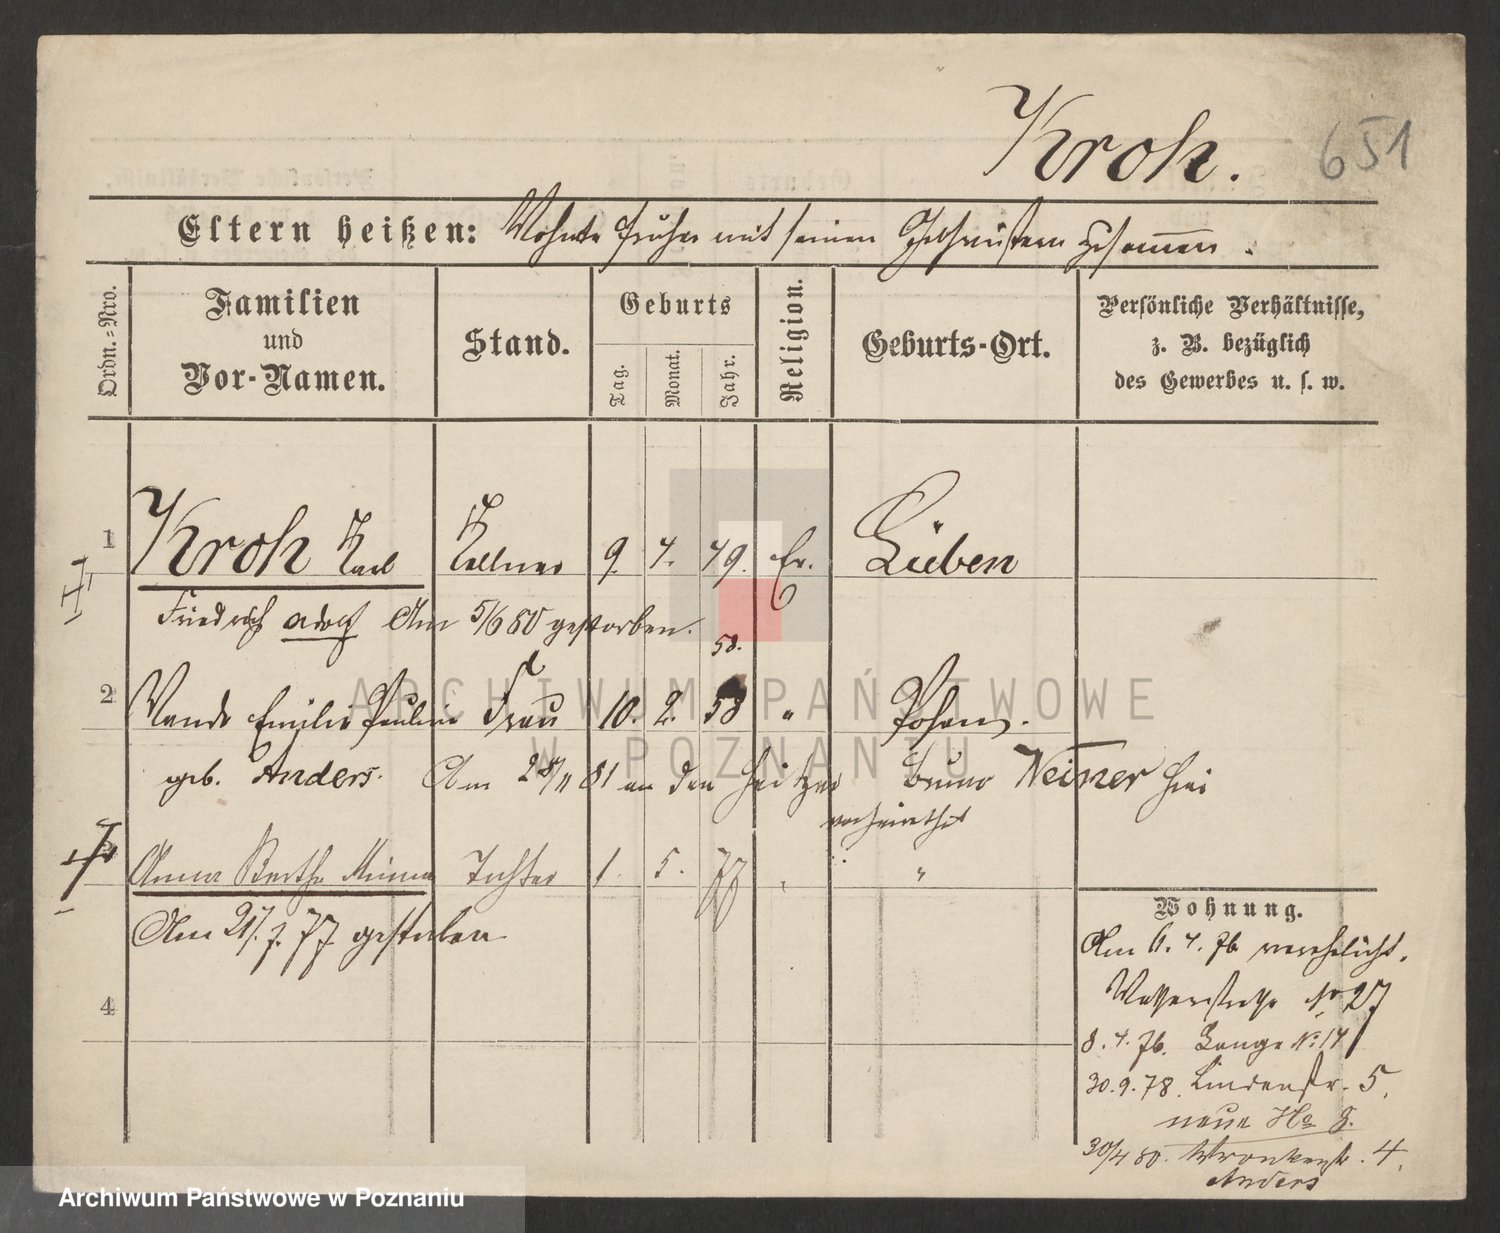 Kroh. 651
Eltern heißen: Wohnte früher mit seinen zusammen.
Ordn.-Nro.
Familien
und
Vor-Namen.
Stand.
Geburts
Tag.
Monat.
Jahr.
Religion.
Geburts-Ort.
Persönliche Verhältnisse,
z. B. bezüglich
des Gewerbes u. s. w.
1 Kroh Karl Kellner 9. 4. 49. Ev. Lüben
Friedrich Adolf Am 5/6 80 gestorben.
58.
2 Wanda Emilie Pauline Frau 10. 2. 58 " Posen.
geb. Anders. Am 28/11 81 an den Heitzer Bruno Weiner hier
verheirathet
3 Anna Bertha Minna Tochter 1. 5. 77 " "
Am 21/7. 77 gestorben
4
Wohnung.
Am 6. 4. 76 verehelicht.
No 27
8. 4. 76. Lange No 14
30.9.78. Lindenstr. 5.
neue No 8.
30/4 80. Wronkerstr. 4.
Anders
ARCHIWUM PAŃSTWOWE
W POZNANIU
Archiwum Państwowe w Poznaniu